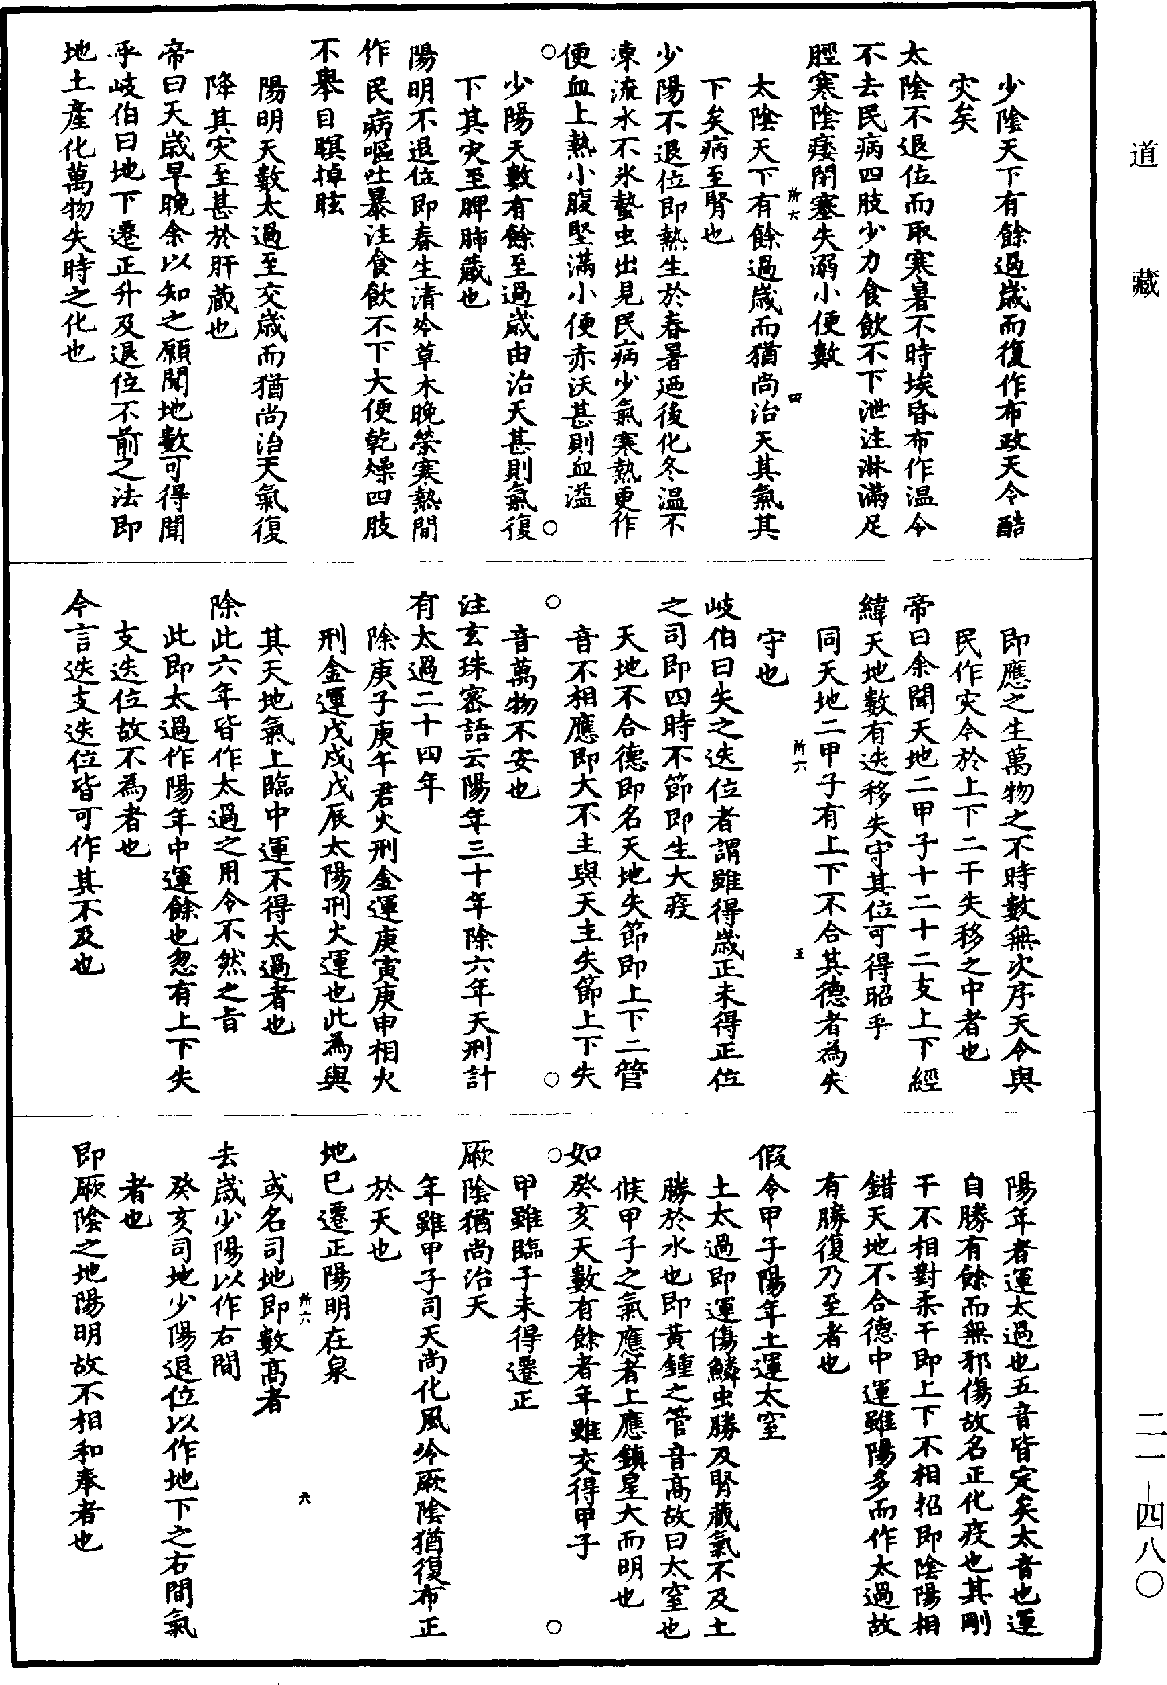 道藏
少陰天下有餘過歲而復作布政天令酷
灾矣
太陰不退位而取寒暑不時埃昏布作温令
不去民病四肢少力食飲不下泄注淋滿足
脛寒陰痿閉塞失溺小便數
太陰天下有餘過歲而猶尚治天其氣其
下矣病至腎也
少陽不退位即熱生於春暑廼後化冬温不
凍流水不氷蟄虫出見民病少氣寒熱更作
便血上熱小腹堅滿小便赤沃甚則血溢
少陽天數有餘至過歲由治天甚則氣復
下其灾至脾肺藏也
陽明不退位即春生清冷草木晚榮寒熱間
作民病嘔吐暴注食飲不下大便乾燥四肢
不舉目瞑掉眩
陽明天數太過至交歲而猶尚治天氣復
降其灾至甚於肝藏也
帝曰天歲早晚余以知之願聞地數可得聞
乎岐伯曰地下遷正升及退位不前之法即
地土產化萬物失時之化也
即應之生萬物之不時數無次序天令與
民作灾令於上下二干失移之中者也
帝曰余聞天地二甲子十二十二支上下經
緯天地數有迭移失守其位可得昭乎
同天地二甲子有上下不合其德者為失
守也
岐伯曰失之迭位者謂雖得歲正未得正位
之司即四時不節即生大疫
天地不合德即名天地失節即上下二管
音不相應即大不主與天主失節上下失
音萬物不安也
注玄珠密語云陽年三十年除六年天刑計
有太過二十四年
除庚子庚午君火刑金運庚寅庚申相火
刑金運戊戌戊辰太陽刑火運也此為與
其天地氣上臨中運不得太過者也
除此六年皆作太過之用令不然之旨
此即太過作陽年中運餘也忽有上下失
支迭位故不為者也
今言迭支迭位皆可作其不及也
陽年者運太過也五音皆定矣太音也運
自勝有餘而無邪傷故名正化疫也其剛
干不相對柔干即上下不相招即陰陽相
錯天地不合德中運雖陽多而作太過故
有勝復乃至者也
假令甲子陽年土運太窒
土太過即運傷鱗虫勝及腎藏氣不及土
勝於水也即黃鍾之管音高故曰太窒也
候甲子之氣應者上應鎮星大而明也
如癸亥天數有餘者年雖交得甲子
甲雖臨子未得遷正
厥陰猶尚治天
年雖甲子司天尚化風冷厥陰猶復布正
於天也
地巳遷正陽明在泉
或名司地即數高者
去歲少陽以作右間
癸亥司地少陽退位以作地下之右間氣
者也
即厥陰之地陽明故不相和奉者也
所六
四
所六
五
所六
六
二一－四八〇